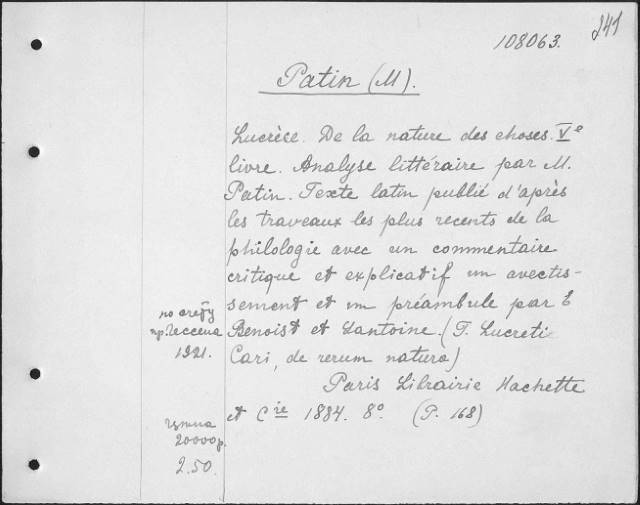 241
108063.
Patin (M).
Lucrèce. De la nature des choses. Vᵉ
livre. Analyse littéraire par M.
Patin. Texte latin publié d'après
les traveaux les plus recents de la
philologie avec un commentaire
critique et explicatif un avectis-
sement et un préambule par E
Benoist et Lantoine. (T. Lucreti
Cari, de rerum natura)
Paris Librairie Hachette
et Cⁱᵉ 1884. 8º. (P. 168)
по
пр.
1921.
20000р.
2.50.